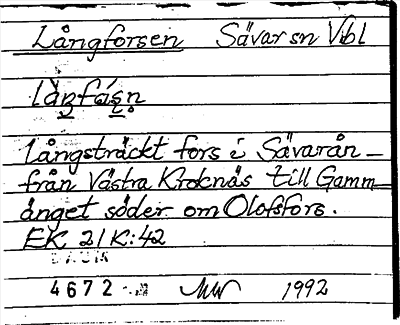 Långforsen Sävar sn Vbl
långfásn
Långsträckt fors i Sävarån
från Västra Kroknäs till Gamm-
änget söder om Olofsfors.
EK 21K:42
4672 MW 1992